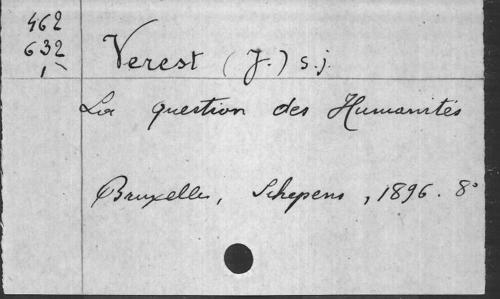 462
632
1
Verest (J.) s.j.
La question des Humanités
Bruxelles, Schepens, 1896. 8°